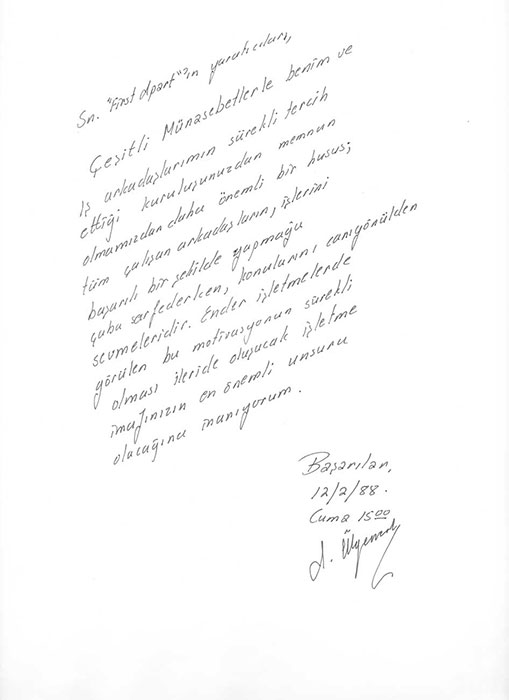 Sn. "First Apart"'ın yaratıcıları,
Çeşitli Münasebetlerle benim ve
iş arkadaşlarımın sürekli tercih
ettiği kuruluşunuzdan memnun
olmamızdan daha önemli bir husus;
tüm çalışan arkadaşların, işlerini
başarılı bir şekilde yapmağa
çaba sarfederken, konularını canıgönülden
sevmeleridir. Ender işletmelerde
görülen bu motivasyonun sürekli
olması ileride oluşacak işletme
imajınızın en önemli unsuru
olacağına inanıyorum.
Başarılar,
12/2/88.
Cuma 15⁰⁰